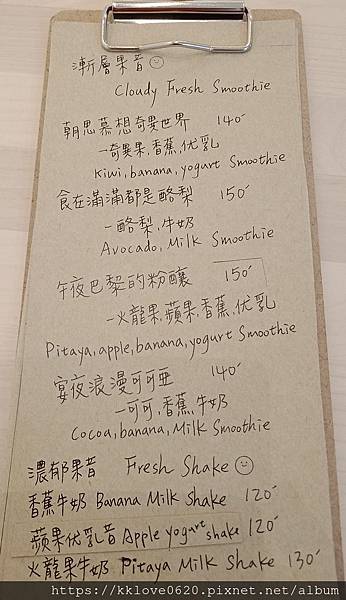 漸層果昔
Cloudy Fresh Smoothie
朝思慕想奇異世界 140
—奇異果,香蕉,优乳
Kiwi, banana, yogurt Smoothie
食在滿滿都是酪梨 150
—酪梨,牛奶
Avocado, Milk Smoothie
午夜巴黎的粉釀 150
—火龍果,蘋果,香蕉,优乳
Pitaya, apple, banana, yogurt Smoothie
宴夜浪漫可可亞 140
—可可,香蕉,牛奶
Cocoa, banana, Milk Smoothie
濃郁果昔 Fresh Shake
香蕉牛奶 Banana Milk Shake 120
蘋果优乳昔 Apple Yogurt Shake 120
火龍果牛奶 Pitaya Milk Shake 130
https://kklove0620.pixnet.net/album